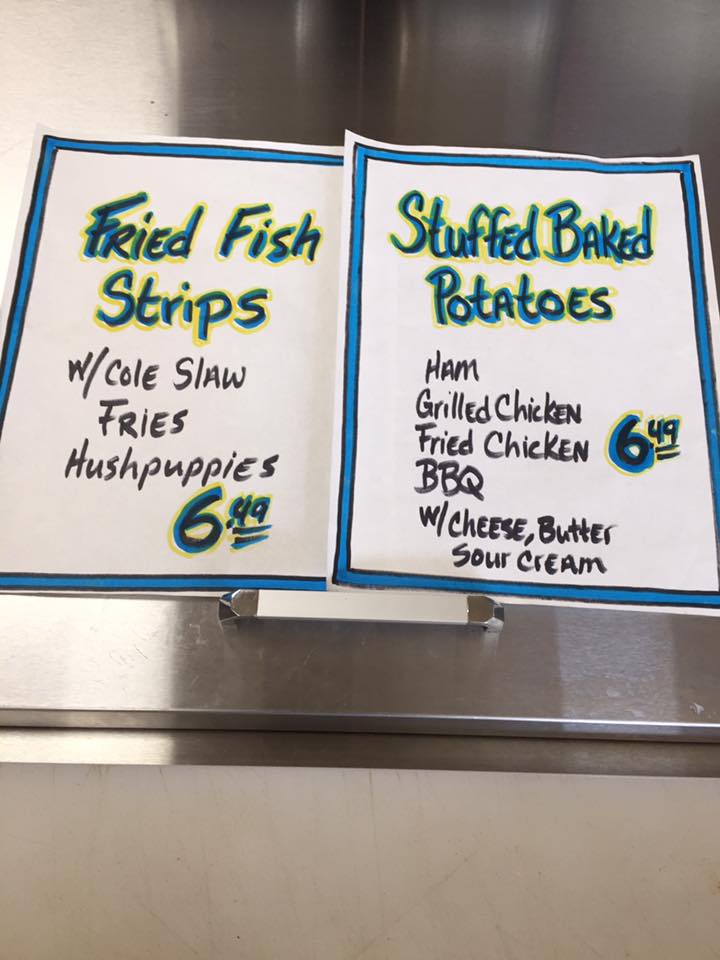 Fried Fish
Strips
w/Cole Slaw
Fries
Hushpuppies
6.49
Stuffed Baked
Potatoes
Ham
Grilled Chicken
Fried Chicken
6.49
BBQ
w/Cheese, Butter
Sour Cream